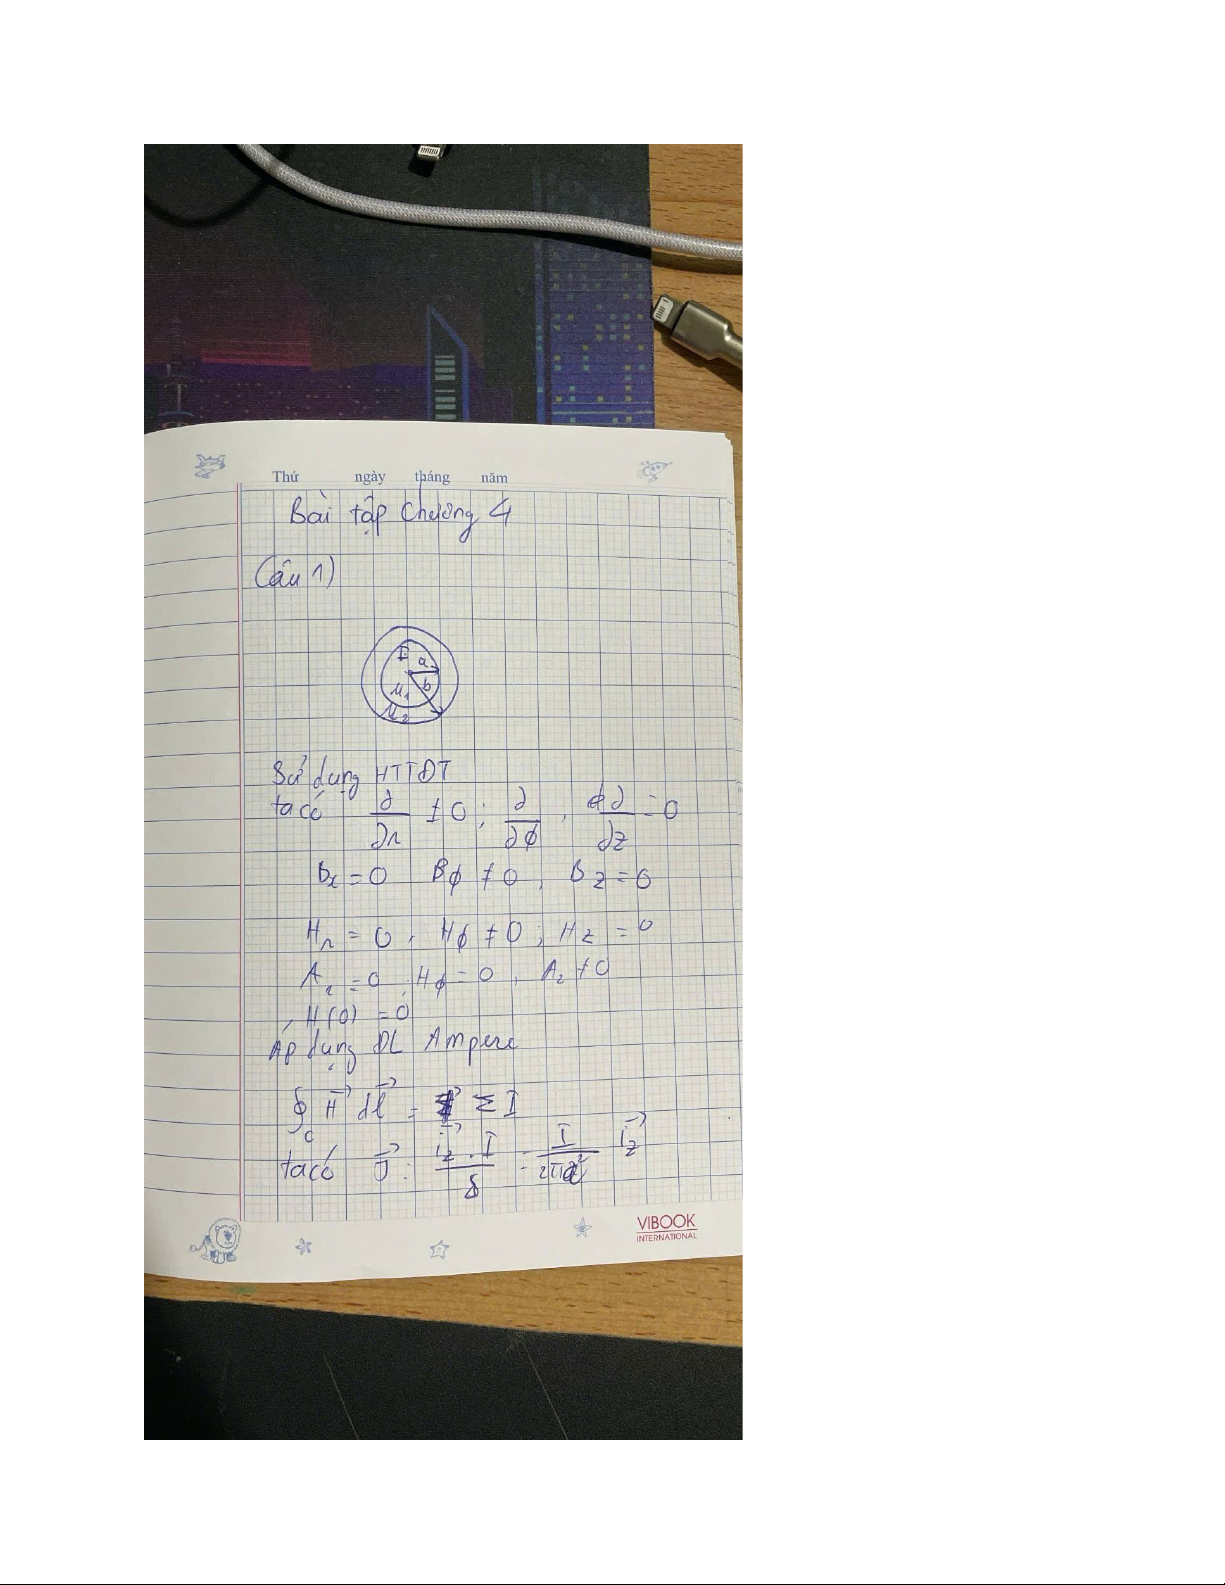 Thứ ngày tháng năm
Bài tập Chương 4
Câu 1)
I a
b
μ1
μ2
Sử dụng HTTĐT
ta có ∂/∂r ≠ 0 ; ∂/∂ϕ , ∂/∂z = 0
Br = 0 Bϕ ≠ 0 , Bz = 0
Hr = 0 , Hϕ ≠ 0 ; Hz = 0
Ar = 0 , Hϕ = 0 , Az ≠ 0
, H(0) = 0
Áp dụng ĐL Ampere
∮c H⃗ dl⃗ = Σ I
ta có J⃗ = i⃗z . I / S = I / 2πa² i⃗z
VIBOOK
INTERNATIONAL